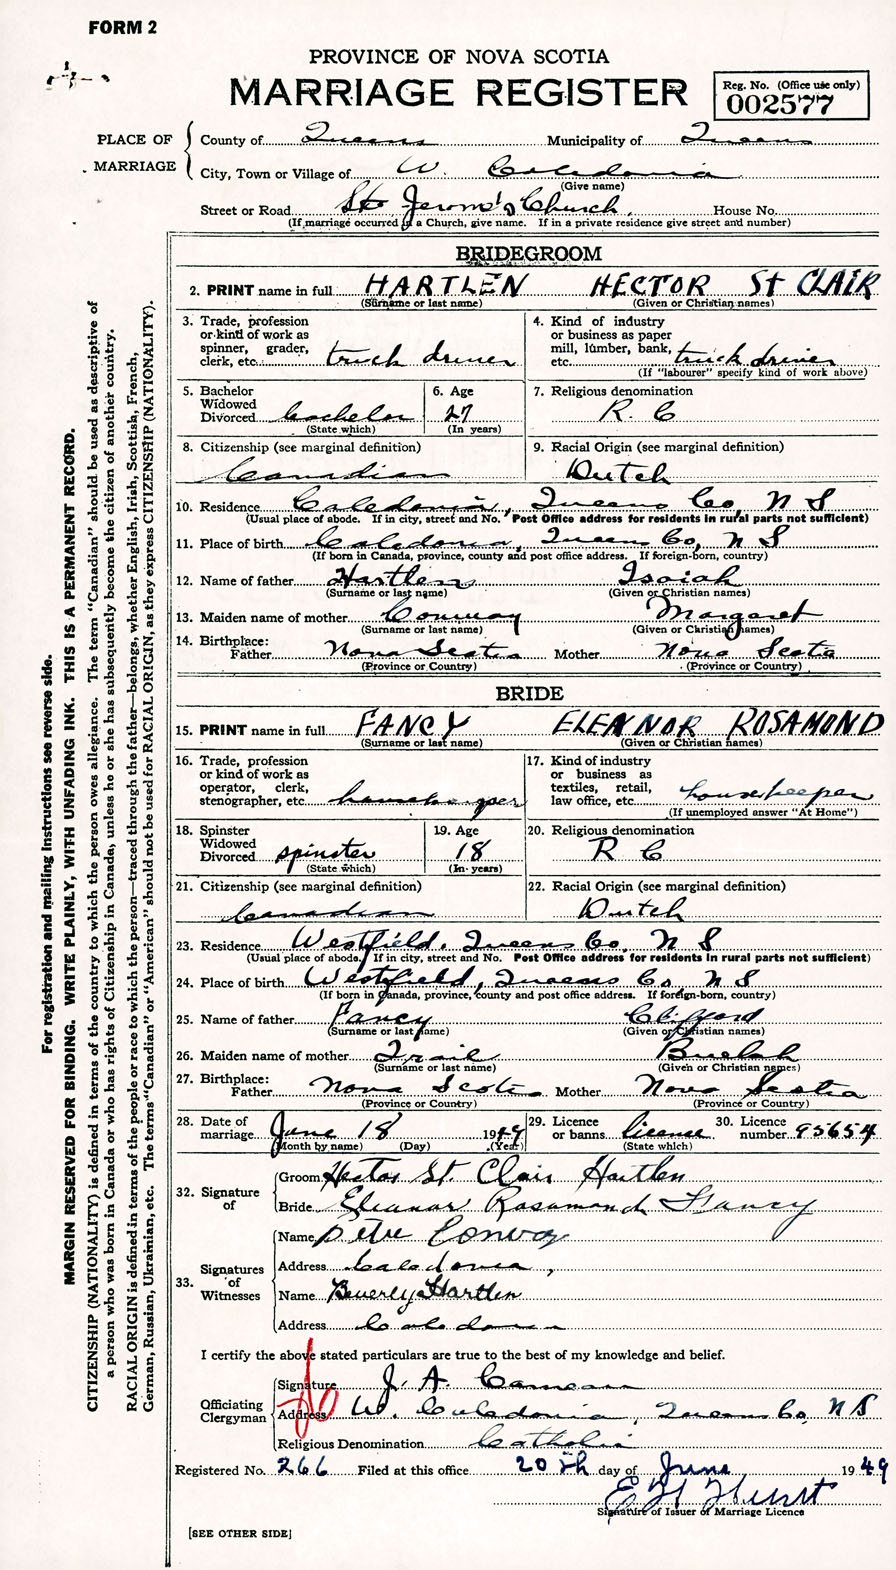 FORM 2
PROVINCE OF NOVA SCOTIA
MARRIAGE REGISTER
Reg. No. (Office use only)
002577
PLACE OF MARRIAGE
County of Queens Municipality of Queens
City, Town or Village of W. Caledonia
(Give name)
Street or Road St. Jerome's Church, House No.
(If marriage occurred in a Church, give name. If in a private residence give street and number)
BRIDEGROOM
2. PRINT name in full HARTLEN HECTOR St CLAIR
(Surname or last name) (Given or Christian names)
3. Trade, profession or kind of work as spinner, grader, clerk, etc. truck driver
4. Kind of industry or business as paper mill, lumber, bank, etc. truck driver
(If "labourer" specify kind of work above)
5. Bachelor Widowed Divorced bachelor
(State which)
6. Age 27
(In years)
7. Religious denomination R. C
8. Citizenship (see marginal definition) Canadian
9. Racial Origin (see marginal definition) Dutch
10. Residence Caledonia, Queens Co, N S
(Usual place of abode. If in city, street and No. Post Office address for residents in rural parts not sufficient)
11. Place of birth Caledonia, Queens Co, N S
(If born in Canada, province, county and post office address. If foreign-born, country)
12. Name of father Hartlen Isaiah
(Surname or last name) (Given or Christian names)
13. Maiden name of mother Conway Margaret
(Surname or last name) (Given or Christian names)
14. Birthplace: Father Nova Scotia Mother Nova Scotia
(Province or Country) (Province or Country)
BRIDE
15. PRINT name in full FANCY ELEANOR ROSAMOND
(Surname or last name) (Given or Christian names)
16. Trade, profession or kind of work as operator, clerk, stenographer, etc. housekeeper
17. Kind of industry or business as textiles, retail, law office, etc. housekeeper
(If unemployed answer "At Home")
18. Spinster Widowed Divorced spinster
(State which)
19. Age 18
(In years)
20. Religious denomination R C
21. Citizenship (see marginal definition) Canadian
22. Racial Origin (see marginal definition) Dutch
23. Residence Westfield, Queens Co, N S
(Usual place of abode. If in city, street and No. Post Office address for residents in rural parts not sufficient)
24. Place of birth Westfield, Queens Co, N S
(If born in Canada, province, county and post office address. If foreign-born, country)
25. Name of father Fancy Clifford
(Surname or last name) (Given or Christian names)
26. Maiden name of mother Trail Buelah
(Surname or last name) (Given or Christian names)
27. Birthplace: Father Nova Scotia Mother Nova Scotia
(Province or Country) (Province or Country)
28. Date of marriage June 18 1949
(Month by name) (Day) (Year)
29. Licence or banns license
(State which)
30. Licence number 95654
32. Signature of
Groom Hector St. Clair Hartlen
Bride Eleanor Rosamond Fancy
33. Signatures of Witnesses
Name Pete Conway
Address Caledonia,
Name Beverly Hartlen
Address Caledonia
I certify the above stated particulars are true to the best of my knowledge and belief.
Officiating Clergyman
Signature J. A. Cameron
Address W. Caledonia, Queens Co, N S
Religious Denomination Catholic
Registered No. 266 Filed at this office 20th day of June 1949
E H Hurst
Signature of Issuer of Marriage Licence
[SEE OTHER SIDE]
For registration and mailing instructions see reverse side.
MARGIN RESERVED FOR BINDING. WRITE PLAINLY, WITH UNFADING INK. THIS IS A PERMANENT RECORD.
CITIZENSHIP (NATIONALITY) is defined in terms of the country to which the person owes allegiance. The term "Canadian" should be used as descriptive of
a person who was born in Canada or who has rights of Citizenship in Canada, unless he or she has subsequently become the citizen of another country.
RACIAL ORIGIN is defined in terms of the people or race to which the person—traced through the father—belongs, whether English, Irish, Scottish, French,
German, Russian, Ukrainian, etc. The terms "Canadian" or "American" should not be used for RACIAL ORIGIN, as they express CITIZENSHIP (NATIONALITY).